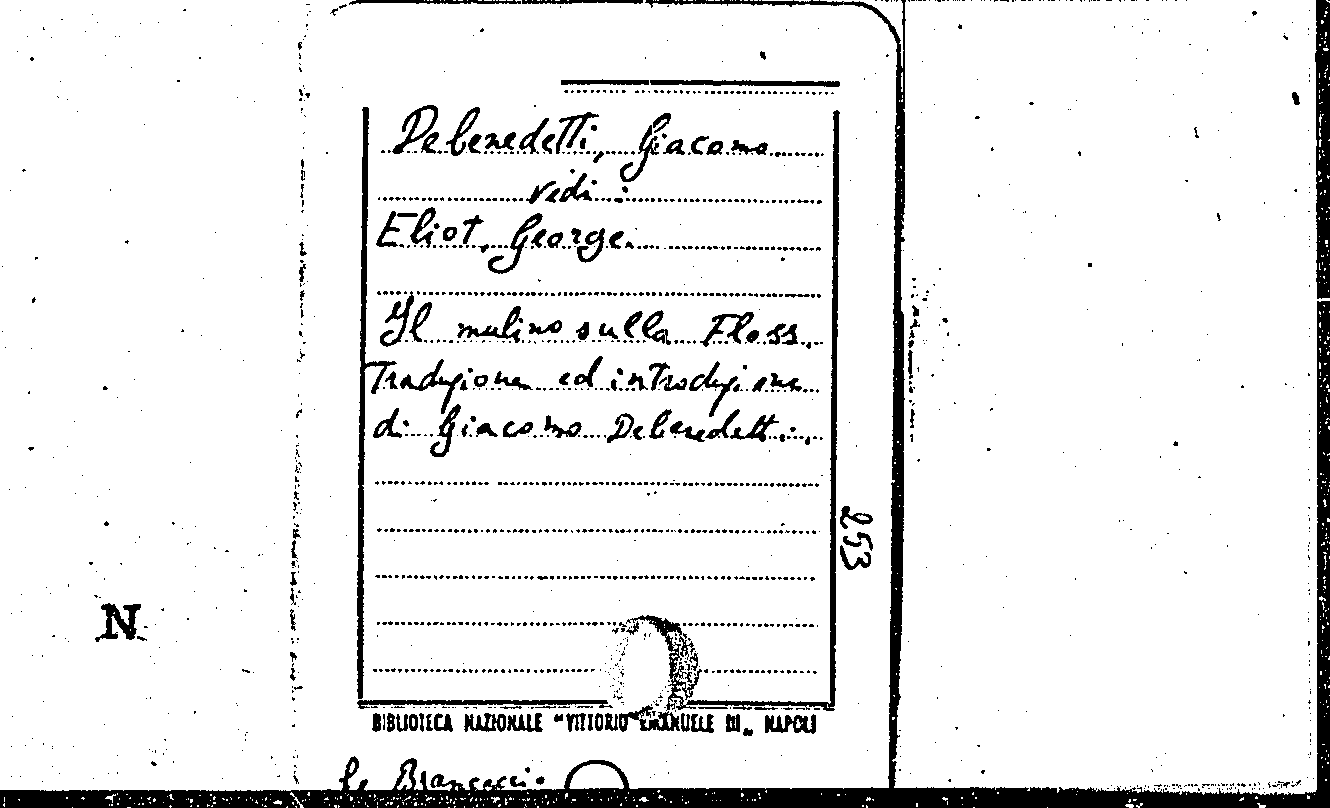 Debenedetti, Giacomo
vedi :
Eliot, George.
Il mulino sulla Floss.
Traduzione ed introduzione
di Giacomo Debenedetti.
253
N
BIBLIOTECA NAZIONALE "VITTORIO EMANUELE III„ NAPOLI
Brancacci